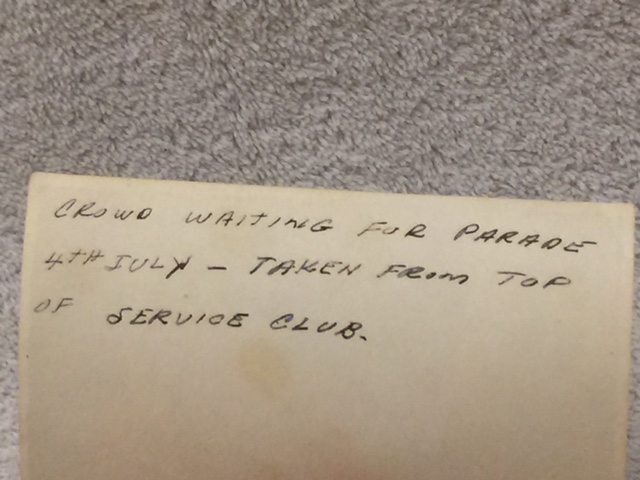 CROWD WAITING FOR PARADE
4TH JULY - TAKEN FROM TOP
OF SERVICE CLUB.